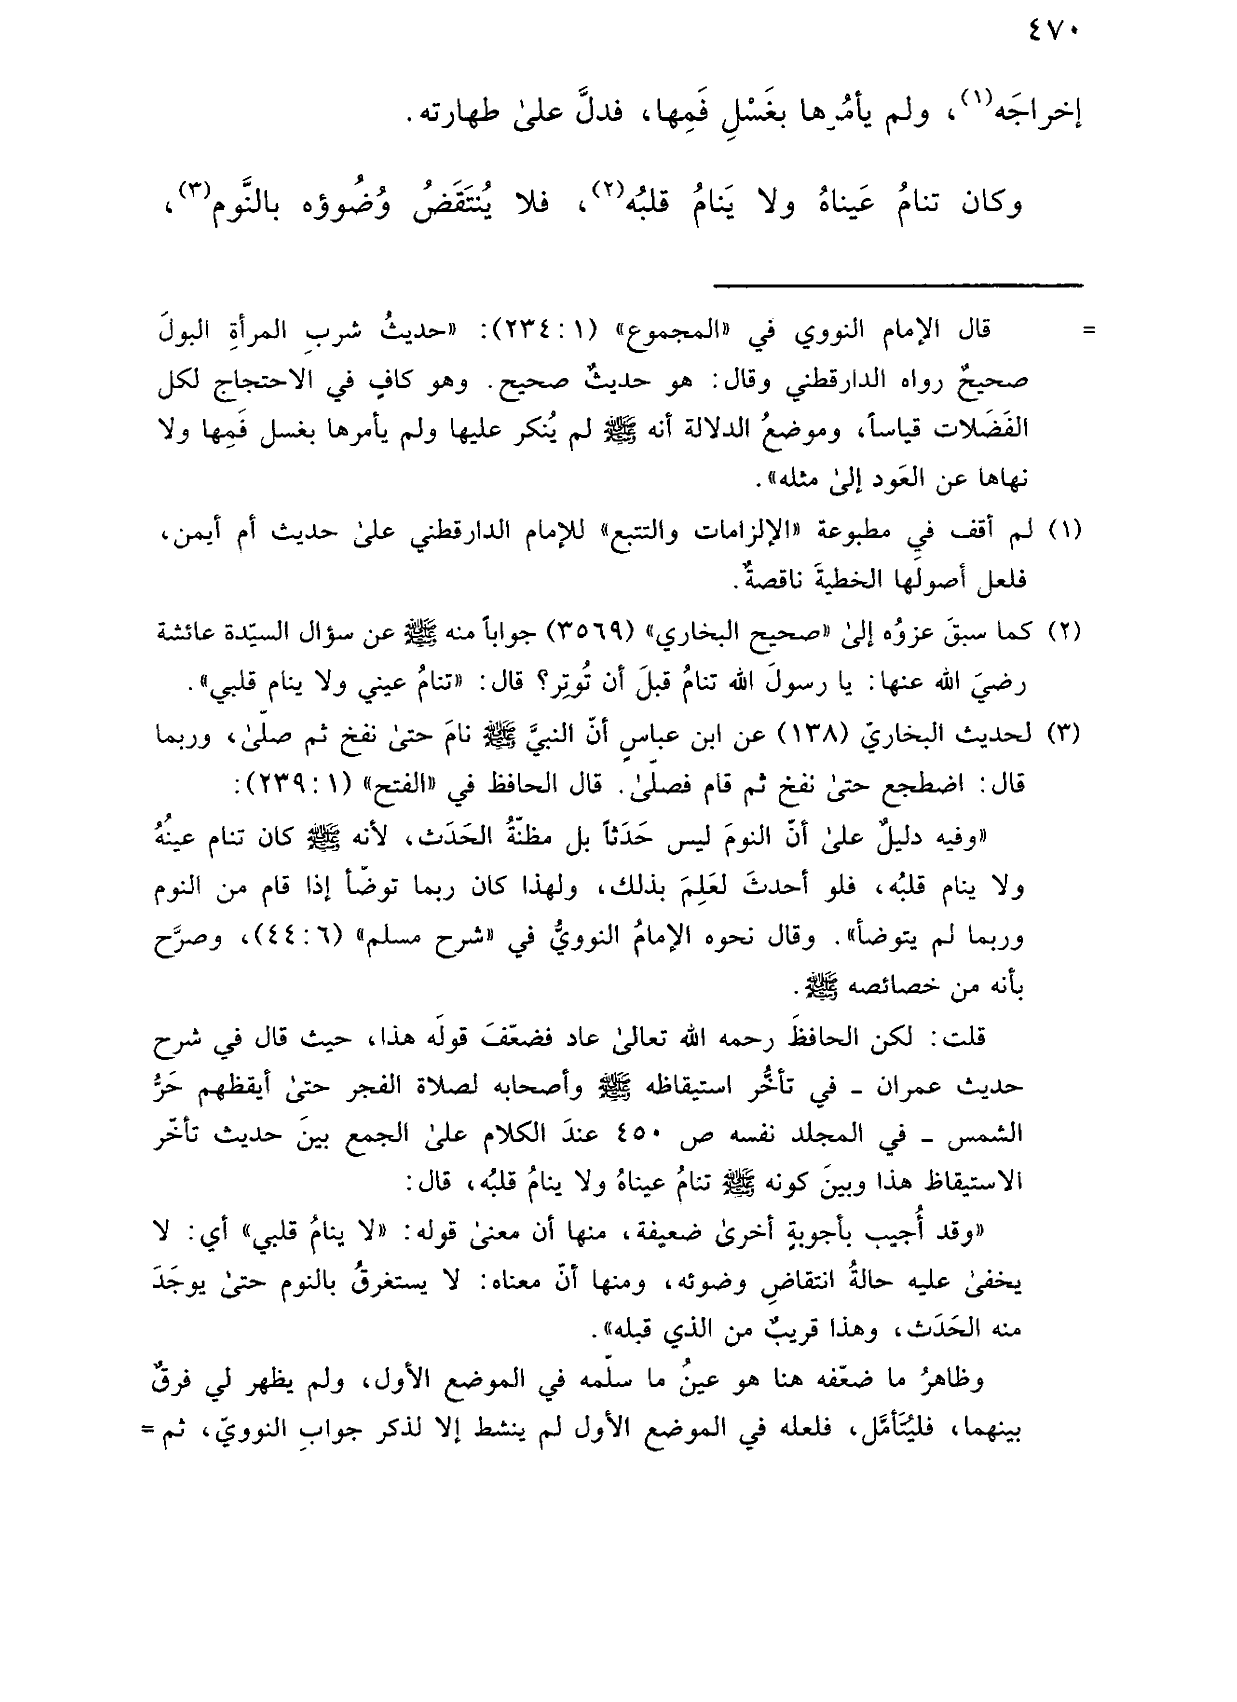 ٤٧٠
إخراجَه(١)، ولم يأمُرها بغَسْلِ فَمِها، فدلَّ علىٰ طهارته.
وكان تنامُ عَيناهُ ولا يَنامُ قلبُه(٢)، فلا يُنتَقَضُ وُضُوؤه بالنَّوم(٣)،
= قال الإمام النووي في «المجموع» (١: ٢٣٤): «حديثُ شربِ المرأةِ البولَ
صحيحٌ رواه الدارقطني وقال: هو حديثٌ صحيح. وهو كافٍ في الاحتجاج لكل
الفَضَلات قياساً، وموضعُ الدلالة أنه ﷺ لم يُنكر عليها ولم يأمرها بغسل فَمِها ولا
نهاها عن العَود إلىٰ مثله».
(١) لم أقف في مطبوعة «الإلزامات والتتبع» للإمام الدارقطني علىٰ حديث أم أيمن،
فلعل أصولَها الخطيةَ ناقصةٌ.
(٢) كما سبقَ عزوُه إلىٰ «صحيح البخاري» (٣٥٦٩) جواباً منه ﷺ عن سؤال السيّدة عائشة
رضيَ الله عنها: يا رسولَ الله تنامُ قبلَ أن تُوتِر؟ قال: «تنامُ عيني ولا ينام قلبي».
(٣) لحديث البخاريّ (١٣٨) عن ابن عباسٍ أنّ النبيَّ ﷺ نامَ حتىٰ نفخ ثم صلّىٰ، وربما
قال: اضطجع حتىٰ نفخ ثم قام فصلّىٰ. قال الحافظ في «الفتح» (١: ٢٣٩):
«وفيه دليلٌ علىٰ أنّ النومَ ليس حَدَثاً بل مظنّةُ الحَدَث، لأنه ﷺ كان تنام عينُهُ
ولا ينام قلبُه، فلو أحدثَ لعَلِمَ بذلك، ولهذا كان ربما توضّأ إذا قام من النوم
وربما لم يتوضأ». وقال نحوه الإمامُ النوويُّ في «شرح مسلم» (٦: ٤٤)، وصرَّح
بأنه من خصائصه ﷺ.
قلت: لكن الحافظَ رحمه الله تعالىٰ عاد فضعّفَ قولَه هذا، حيث قال في شرح
حديث عمران ـ في تأخُّر استيقاظه ﷺ وأصحابه لصلاة الفجر حتىٰ أيقظهم حَرُّ
الشمس ـ في المجلد نفسه ص ٤٥٠ عندَ الكلام علىٰ الجمع بينَ حديث تأخّر
الاستيقاظ هذا وبينَ كونه ﷺ تنامُ عيناهُ ولا ينامُ قلبُه، قال:
«وقد أُجيب بأجوبةٍ أخرىٰ ضعيفة، منها أن معنىٰ قوله: «لا ينامُ قلبي» أي: لا
يخفىٰ عليه حالةُ انتقاضِ وضوئه، ومنها أنّ معناه: لا يستغرقُ بالنوم حتىٰ يوجَدَ
منه الحَدَث، وهذا قريبٌ من الذي قبله».
وظاهرُ ما ضعّفه هنا هو عينُ ما سلّمه في الموضع الأول، ولم يظهر لي فرقٌ
بينهما، فليُتَأمَّل، فلعله في الموضع الأول لم ينشط إلا لذكر جوابِ النوويّ، ثم =